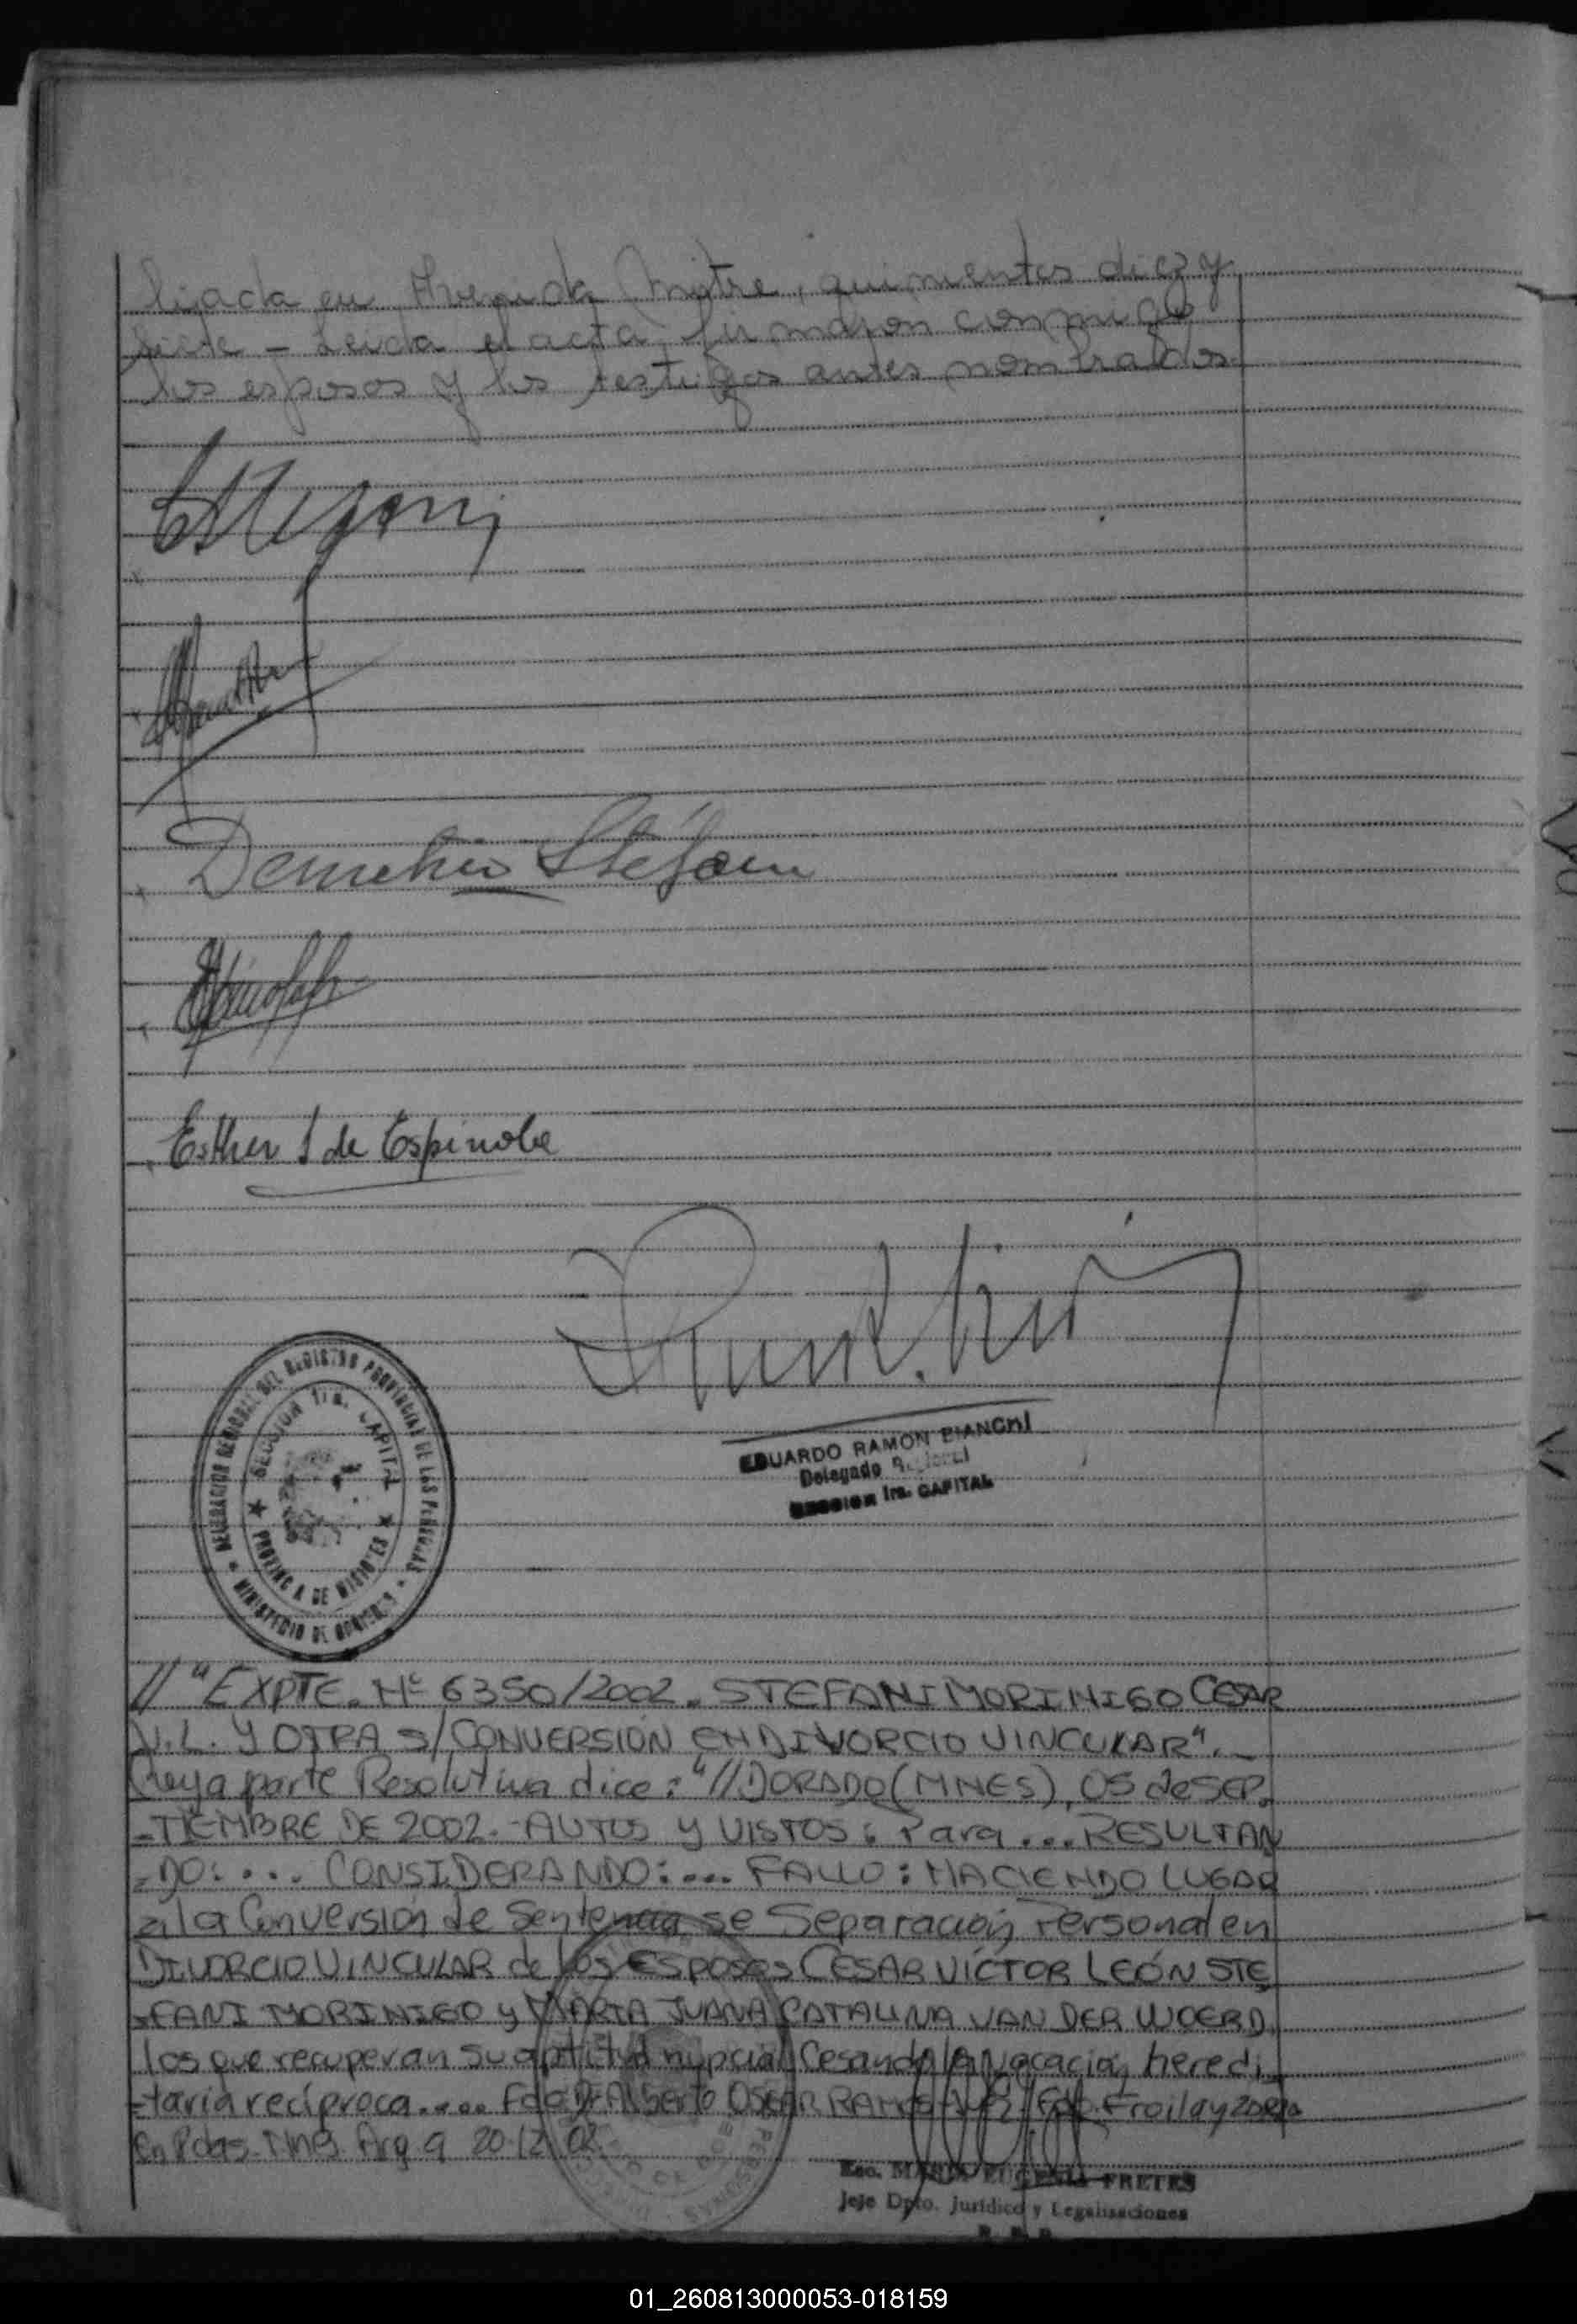 liada en Avenida Mitre, quinientos diez y
siete - Leida el acta, firmaron conmigo
los esposos y los testigos antes nombrados.-
Demetrio Stéfani
Esther S de Espínola
DELEGACION REGIONAL DEL REGISTRO PROVINCIAL DE LAS PERSONAS
SECCION 1ra. CAPITAL
PROVINCIA DE MISIONES
MINISTERIO DE GOBIERNO
EDUARDO RAMON BIANCHI
Delegado Regional
SECCION 1ra. CAPITAL
//"EXPTE. Nº 6350/2002. STEFANI MORINIGO CESAR
V.L. Y OTRA S/CONVERSIÓN EN DIVORCIO VINCULAR".-
Cuya parte Resolutiva dice: "//DORADO (MNES), 05 de SEP-
-TIEMBRE DE 2002.- AUTOS y VISTOS: Para ... RESULTAN
-DO: ... CONSIDERANDO: ... FALLO: HACIENDO LUGAR
a la Conversión de Sentencia se Separación Personal en
DIVORCIO VINCULAR de los esposos CESAR VÍCTOR LEÓN STE
-FANI MORINIGO y MARIA JUANA CATALINA VAN DER WOERD,
los que recuperan su aptitud nupcial, Cesando la Vocación heredi-
-taria recíproca.... Fdo. Dr. Alberto OSCAR RAMOS Juez
En Pdas. Mnes. Arg. a 20-12-02.-
Esc. MARIA EUGENIA FRETES
Jefe Dpto. Jurídico y Legalisaciones
R. P. P.
01_260813000053-018159